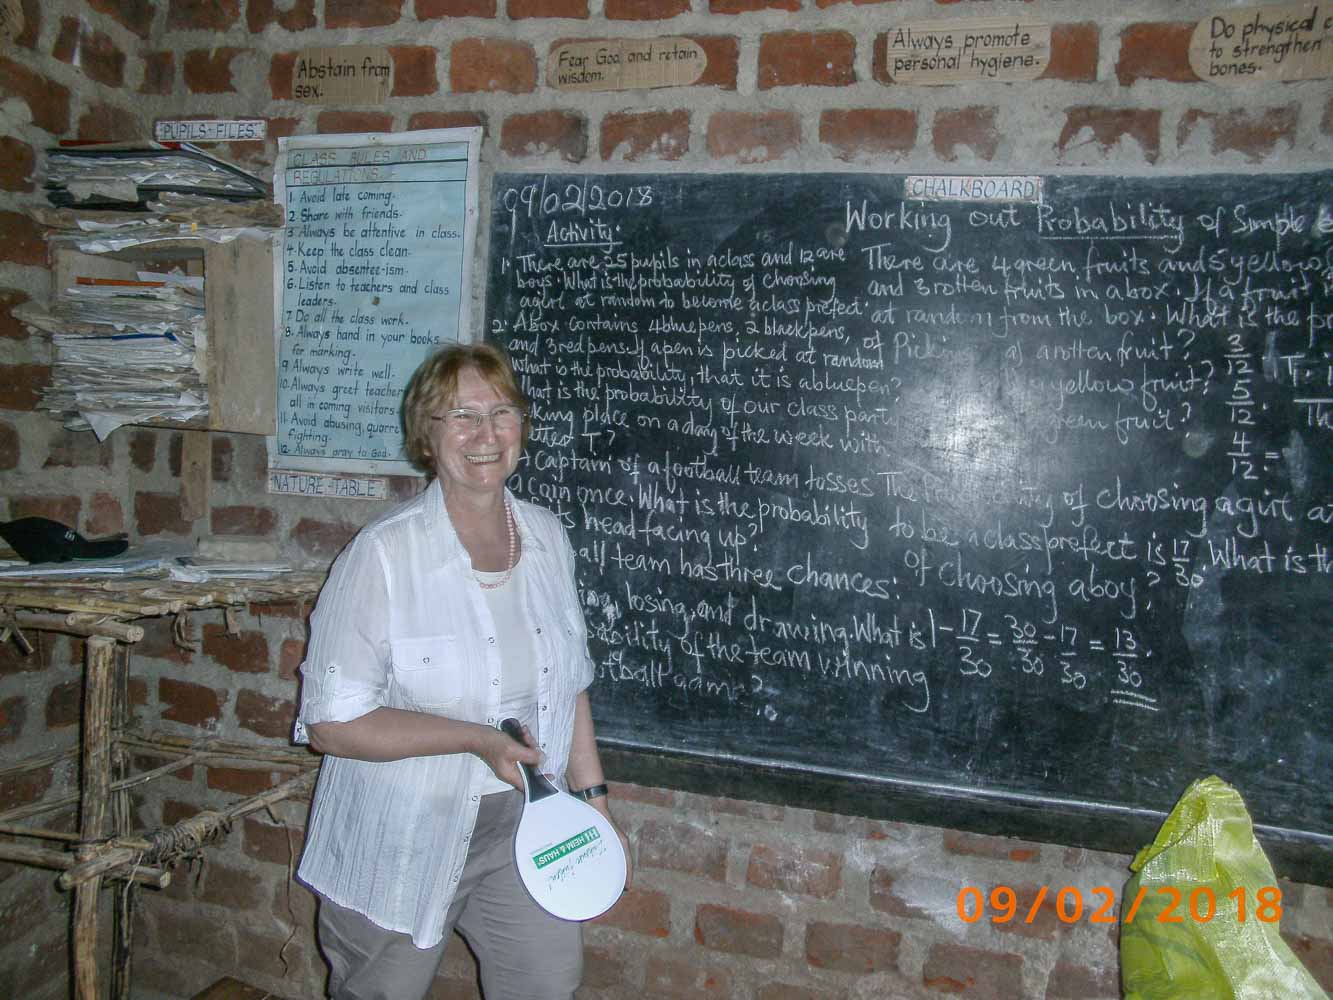 Abstain from
sex.
Fear God and retain
wisdom.
Always promote
personal hygiene.
Do physical
to strengthen
bones.
PUPILS FILES
CLASS RULES AND
REGULATIONS.
1. Avoid late coming.
2 Share with friends.
3 Always be attentive in class.
4. Keep the class clean.
5. Avoid absentee-ism.
6. Listen to teachers and class
leaders.
7. Do all the class work.
8. Always hand in your books
for marking.
9 Always write well.
10. Always greet teacher
all in coming visitors.
11. Avoid abusing, quarre
fighting.
12. Always pray to God.
NATURE-TABLE
CHALKBOARD
09/02/2018
Activity.
1. There are 25 pupils in a class and 12 are
boys. What is the probability of choosing
a girl at random to become a class prefect.
2. A box contains 4 blue pens, 2 black pens,
and 3 red pens. If a pen is picked at random
what is the probability, that it is a blue pen?
hat is the probability of our class part
king place on a day of the week with
tter T?
Captain of a football team tosses
a coin once. What is the probability
its head facing up?
all team has three chances:
losing, and drawing. What is
ability of the team winning
otball game?
Working out Probability of Simple
There are 4 green fruits and 5 yellow
and 3 rotten fruits in a box. If a fruit
at random from the box. What is the
of Picking a) a rotten fruit? 3/12
a yellow fruit? 5/12.
green fruit? 4/12 =
The of choosing a girl
to be a class prefect is 17/30. What is th
of choosing a boy?
1 - 17/30 = 30/30 - 17/30 = 13/30.
HEIM & HAUS
09/02/2018